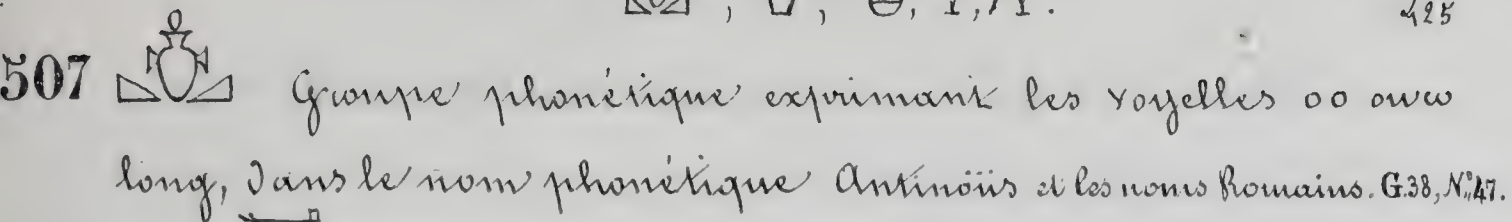 425
507 Groupe phonétique exprimant les voyelles oo ou ω
long, dans le nom phonétique Antinöüs et les noms Romains. G.38, N.º 47.